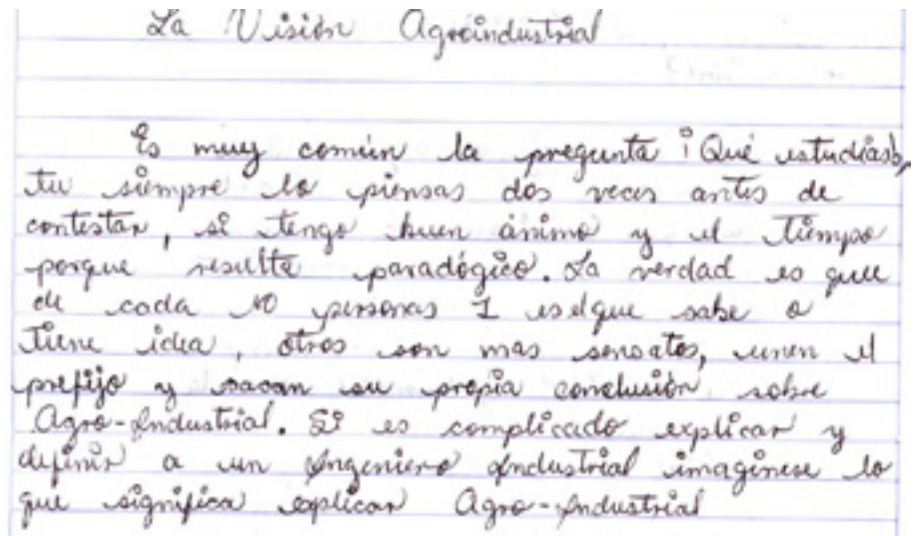 La Visión Agroindustrial
Es muy común la pregunta ¿Qué estudias?,
tu siempre lo piensas dos veces antes de
contestar, si tengo buen ánimo y el tiempo
porque resulta paradógico. La verdad es que
de cada 10 personas 1 es el que sabe o
tiene idea, otros son mas sensatos, unen el
prefijo y sacan su propia conclusión sobre
Agro-Industrial. Si es complicado explicar y
definir a un Ingeniero Industrial imaginese lo
que significa explicar Agro-Industrial